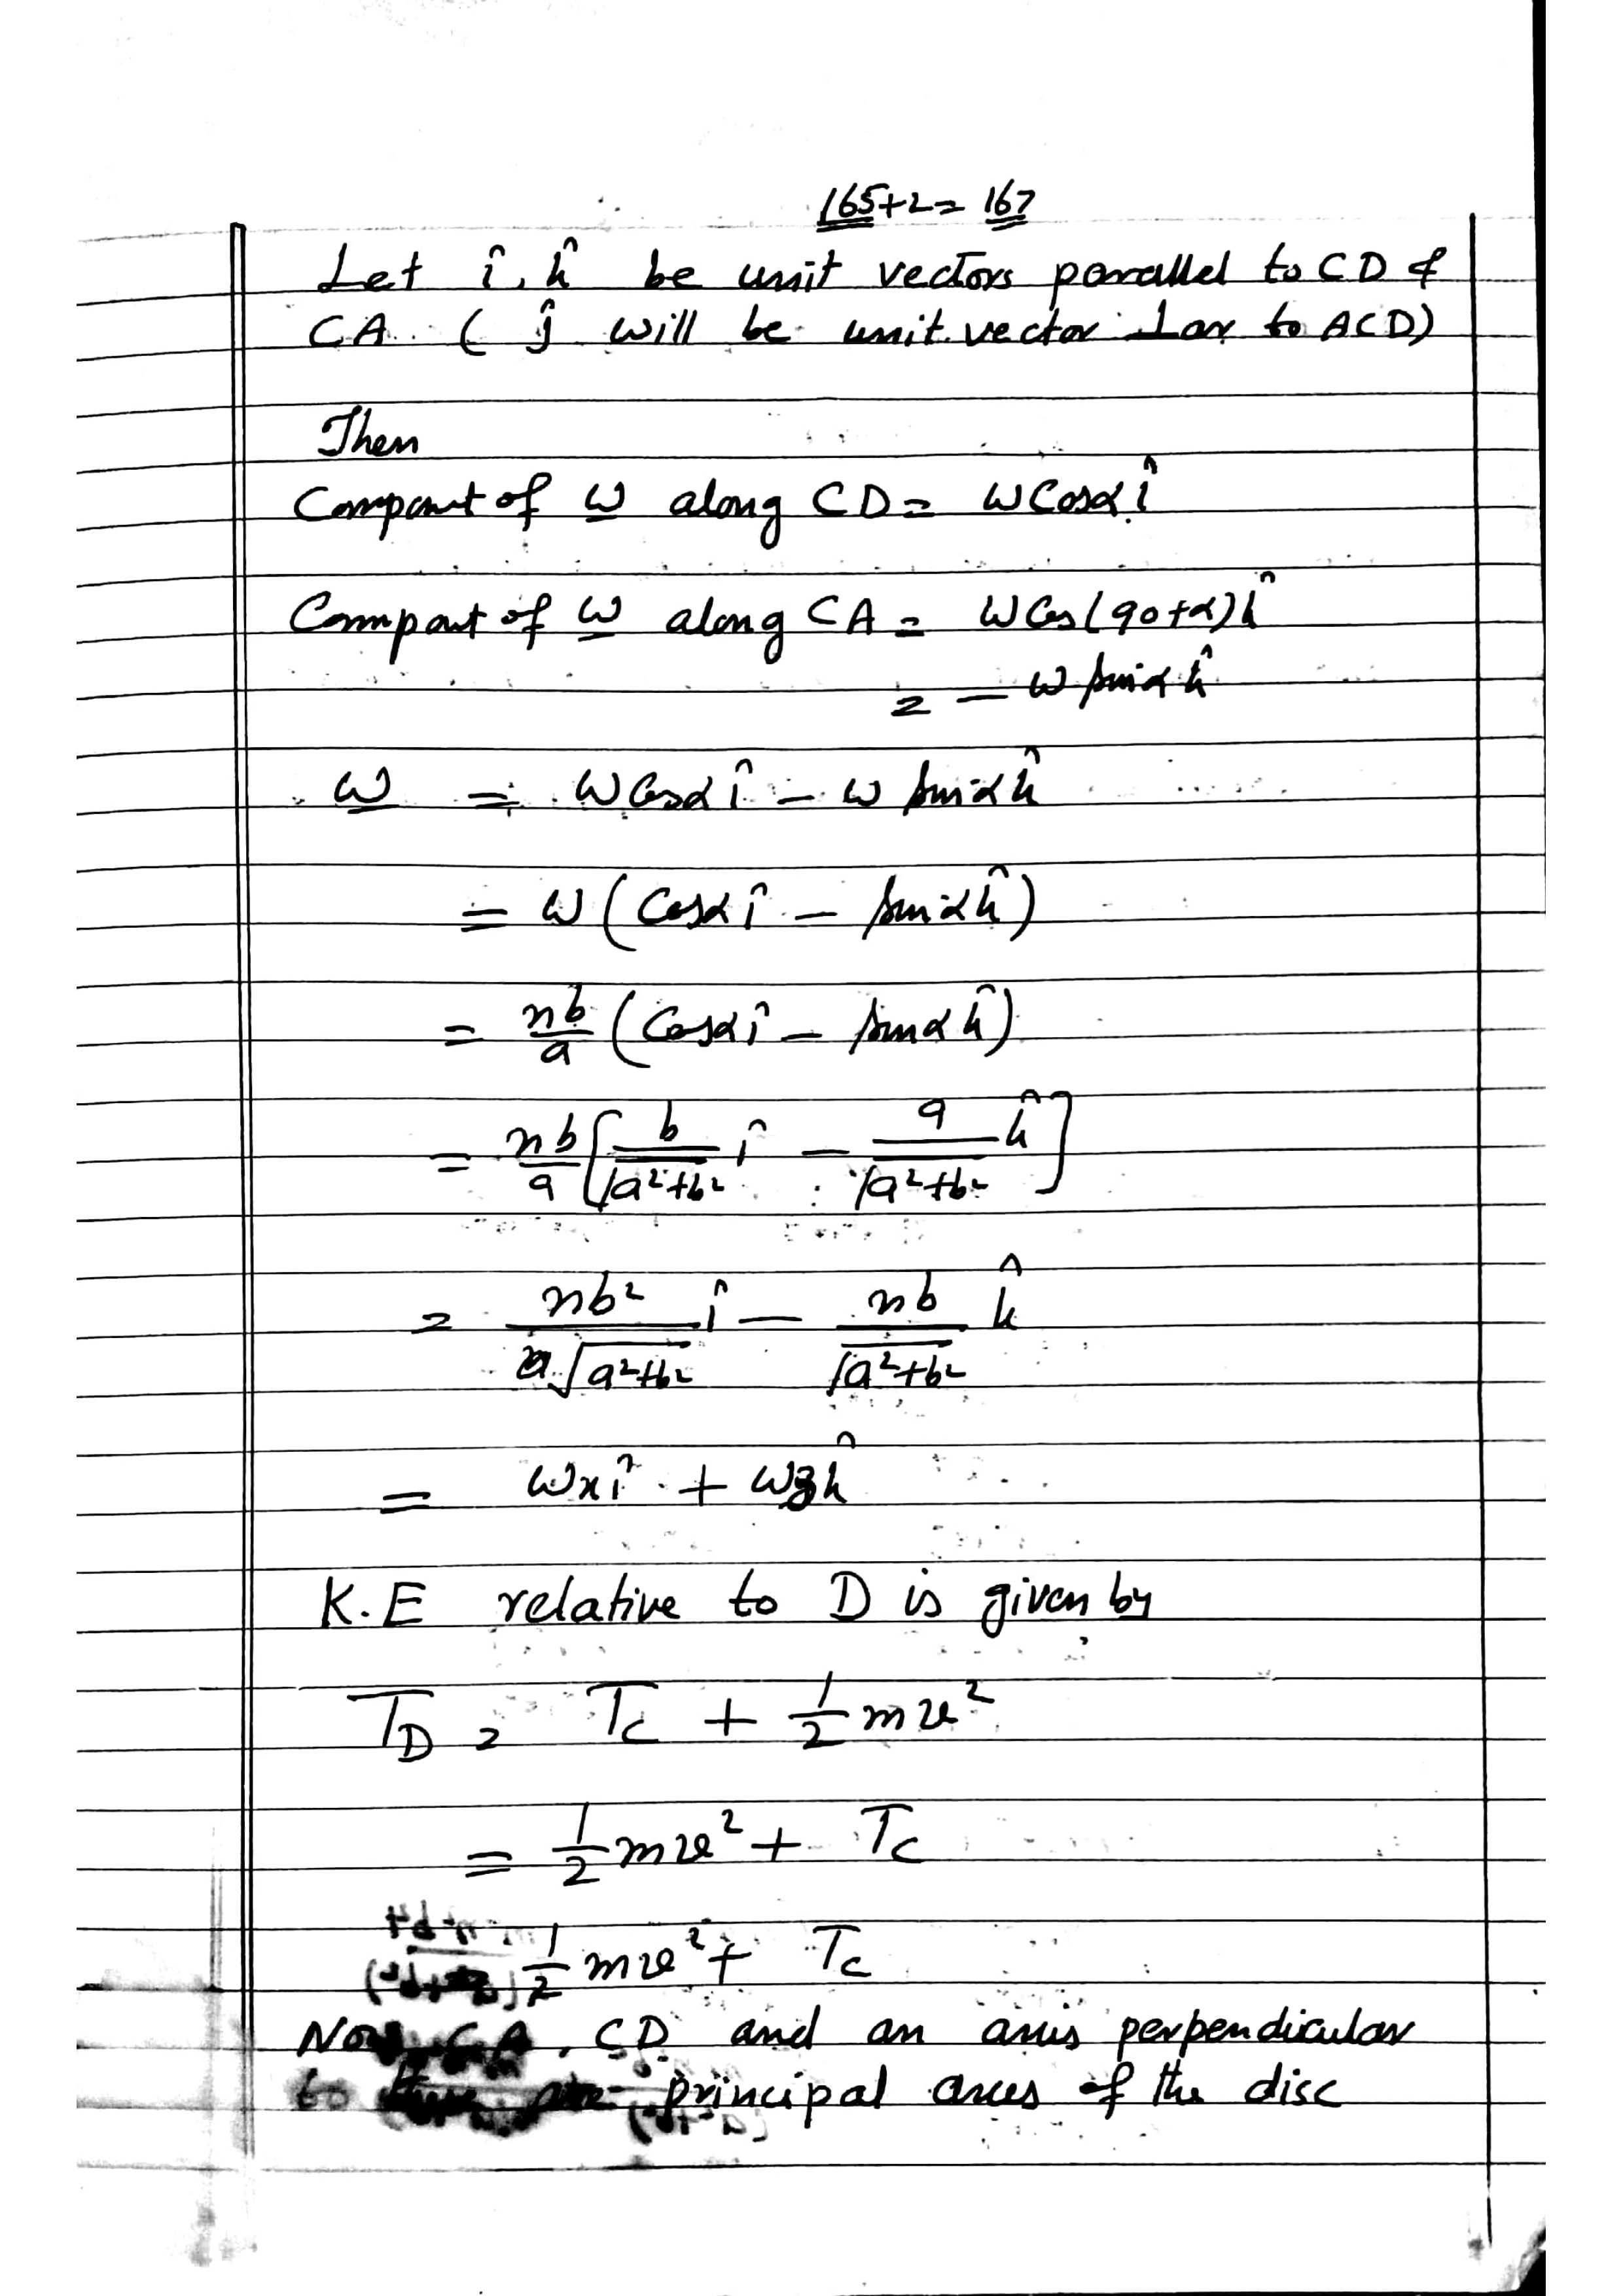 165+2= 167
Let î, k̂ be unit vectors parallel to CD &
CA. ( ĵ will be unit vector ⊥ar to ACD)
Then
Componut of ω along CD = ω Cosα î
Componut of ω along CA = ω Cos(90+α) k̂
= - ω sinα k̂
ω = ω Cosα î - ω sinα k̂
= ω (Cosα î - sinα k̂)
= nb/a (Cosα î - sinα k̂)
= nb/a [b/√a²+b² î - a/√a²+b² k̂]
= nb²/a√a²+b² î - nb/√a²+b² k̂
= ωx î + ωz k̂
K.E relative to D is given by
T_D = T_C + 1/2 mv²
= 1/2 mv² + T_C
1/2 mv² + T_C
Now CA, CD and an axis perpendicular
to these are principal axes of the disc